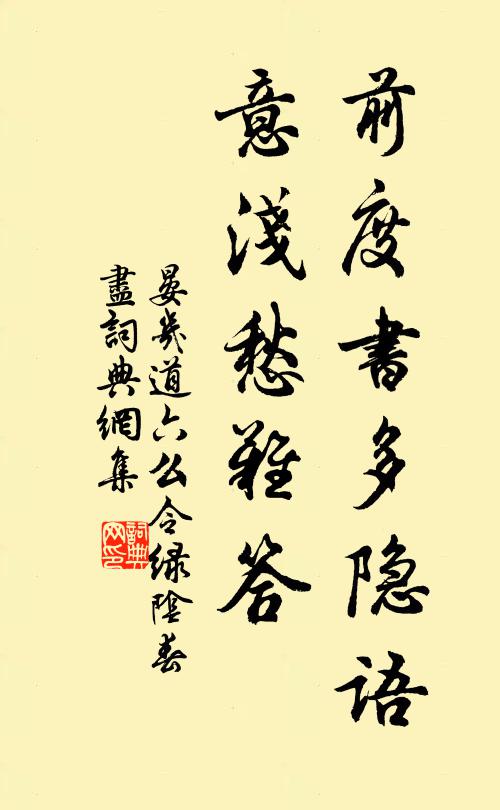 前度書多隐語
意淺愁難答
晏幾道六么令绿陰春
盡詞典網集
詞典網印